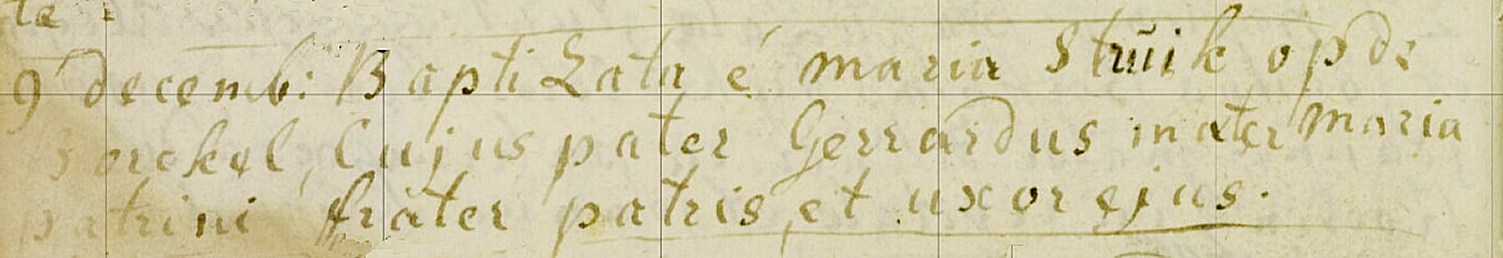 te
9 decemb: BaptiZata é maria Strüik op de
sorekel, Cujus pater Gerrardus mater maria
patrini frater patris, et uxor ejus.